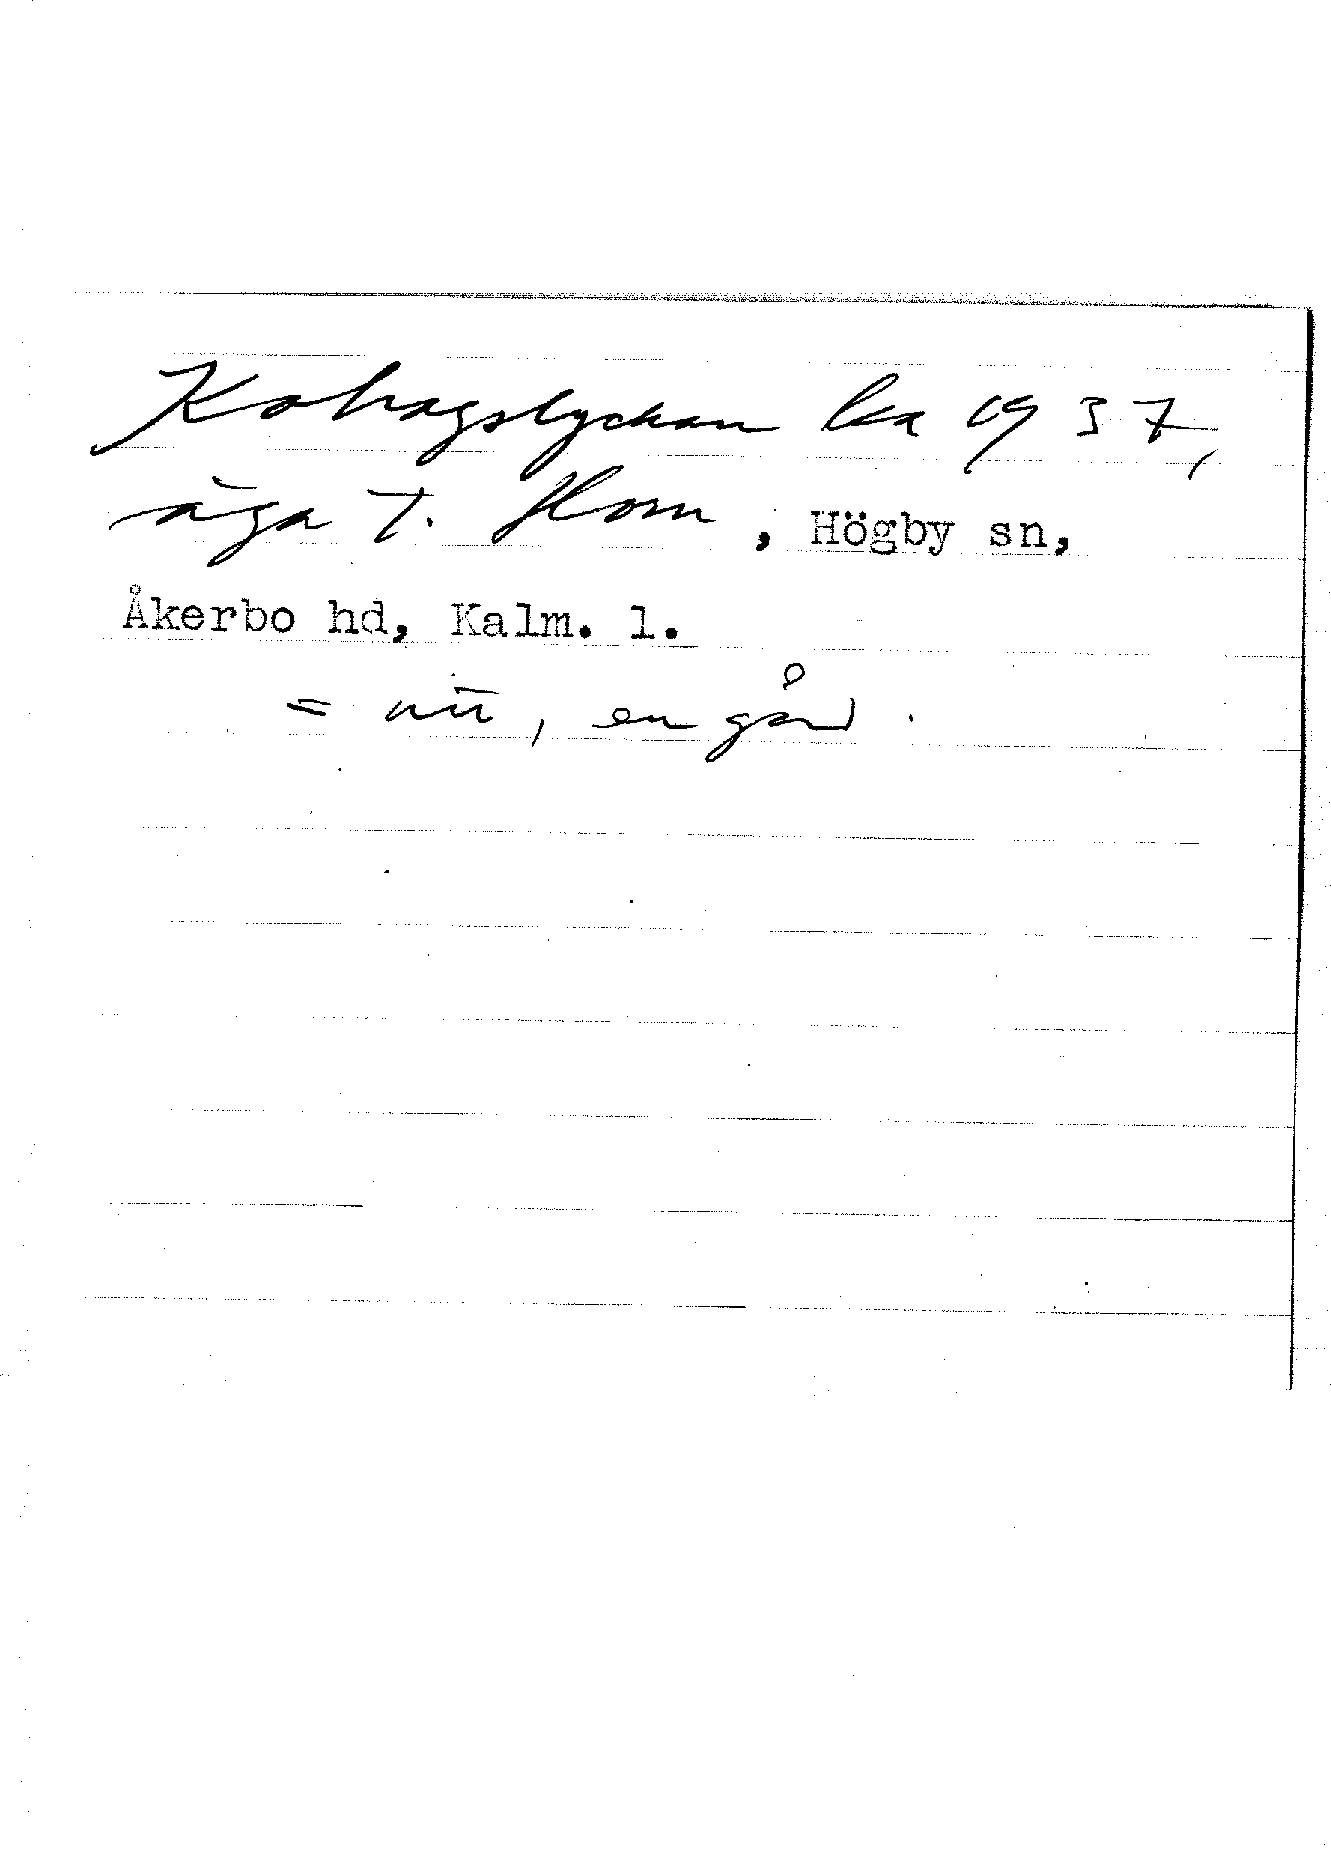 Kohagslyckan lka 1937,
äga t. Horn, Högby sn,
Åkerbo hd, Kalm. l.
= nu, en gård.